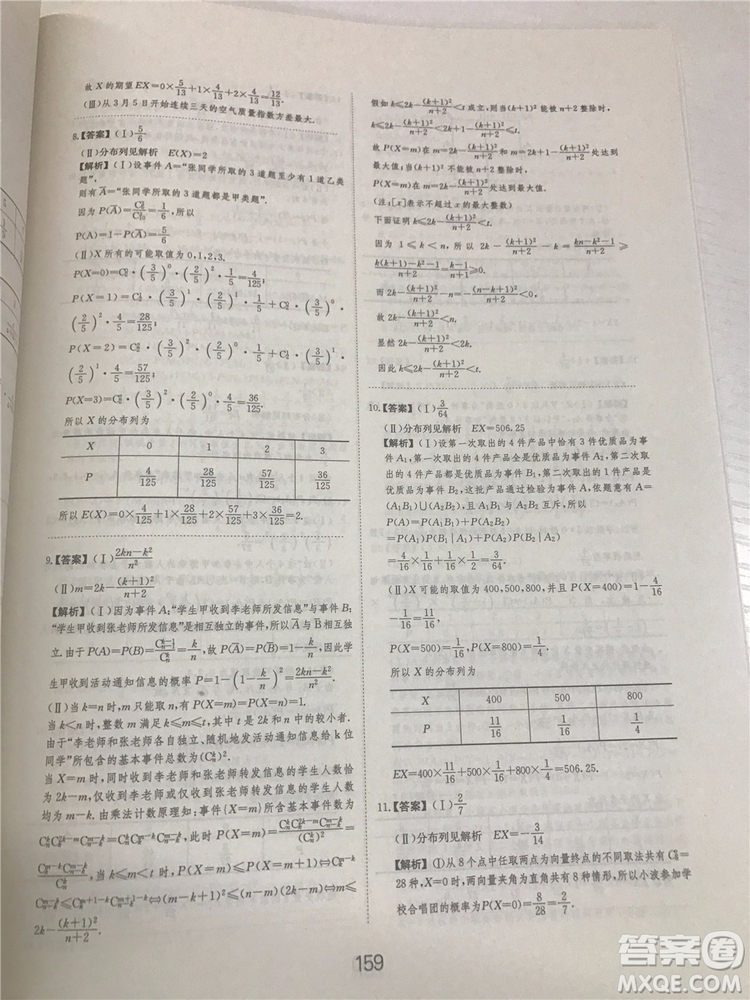 故 X 的期望 EX=0×5/13+1×4/13+2×4/13=12/13.
(Ⅲ)从 3 月 5 日开始连续三天的空气质量指数方差最大.
8.【答案】(Ⅰ)5/6
(Ⅱ)分布列见解析 E(X)=2
【解析】(Ⅰ)设事件 A=“张同学所取的 3 道题至少有 1 道乙类
题”,
则有 A̅=“张同学所取的 3 道题都是甲类题”.
因为 P(A̅)= =1/6,所以
P(A)=1-P(A̅)=5/6.
(Ⅱ)X 所有的可能取值为 0,1,2,3.
P(X=0)=C₂⁰·(3/5)⁰·(2/5)²·1/5=4/125;
P(X=1)=C₂¹·(3/5)¹·(2/5)¹·1/5+C₂⁰·(3/5)⁰·
(2/5)²·4/5=28/125;
P(X=2)=C₂²·(3/5)²·(2/5)⁰·1/5+C₂¹·(3/5)¹·
(2/5)¹·4/5=57/125;
P(X=3)=C₂²·(3/5)²·(2/5)⁰·4/5=36/125.
所以 X 的分布列为
X 0 1 2 3
P 4/125 28/125 57/125 36/125
所以 E(X)=0×4/125+1×28/125+2×57/125+3×36/125=2.
9.【答案】(Ⅰ)(2kn-k²)/n²
(Ⅱ)m=2k-(k+1)²/(n+2)
【解析】(Ⅰ)因为事件 A:“学生甲收到李老师所发信息”与事件 B:
“学生甲收到张老师所发信息”是相互独立的事件,所以 A̅ 与 B̅ 相互独
立.由于 P(A)=P(B)= =k/n,故 P(A̅)=P(B̅)=1-k/n,因此学
生甲收到活动通知信息的概率 P=1-(1-k/n)²=(2kn-k²)/n².
(Ⅱ)当 k=n 时,m 只能取 n,有 P(X=m)=P(X=n)=1.
当 k<n 时,整数 m 满足 k≤m≤t,其中 t 是 2k 和 n 中的较小者.
由于“李老师和张老师各自独立、随机地发活动通知信息给 k 位
同学”所包含的基本事件总数为(Cₙᵏ)².
当 X=m 时,同时收到李老师和张老师转发信息的学生人数恰为
2k-m,仅收到李老师或仅收到张老师转发信息的学生人数
均为 m-k.由乘法计数原理知:事件{X=m}所含基本事件数为
此时 P(X=m)=
当 k≤m<t 时,P(X=m)≤P(X=m+1)⇔
⇔(m-k+1)²≤(n-m)(2k-m)⇔m≤
2k-(k+1)²/(n+2).
假如 k≤2k-(k+1)²/(n+2)<t 成立,则当(k+1)²能被 n+2 整除时,
k≤2k-(k+1)²/(n+2)<2k+1-(k+1)²/(n+2)≤t.
故 P(X=m)在 m=2k-(k+1)²/(n+2)和 m=2k+1-(k+1)²/(n+2)处达到
最大值;当(k+1)²不能被 n+2 整除时,
P(X=m)在 m=2k-[(k+1)²/(n+2)]处达到最大值.
(注:[x]表示不超过 x 的最大整数)
下面证明 k≤2k-(k+1)²/(n+2)<t.
因为 1≤k<n,所以 2k-(k+1)²/(n+2)-k=(kn-k²-1)/(n+2)≥
(k(k+1)-k²-1)/(n+2)=(k-1)/(n+2)≥0.
而 2k-(k+1)²/(n+2)-n=-(n-k+1)²/(n+2)<0,
故 2k-(k+1)²/(n+2)<n.
显然 2k-(k+1)²/(n+2)<2k.
因此 k≤2k-(k+1)²/(n+2)<t.
10.【答案】(Ⅰ)3/64
(Ⅱ)分布列见解析 EX=506.25
【解析】(Ⅰ)设第一次取出的 4 件产品中恰有 3 件优质品为事
件 A₁,第一次取出的 4 件产品全是优质品为事件 A₂,第二次取出
的 4 件产品都是优质品为事件 B₁,第二次取出的 1 件产品是优
质品为事件 B₂,这批产品通过检验为事件 A,依题意有 A=
(A₁B₁)∪(A₂B₂),且 A₁B₁ 与 A₂B₂ 互斥,所以
P(A)=P(A₁B₁)+P(A₂B₂)
=P(A₁)P(B₁|A₁)+P(A₂)P(B₂|A₂)
=4/16×1/16+1/16×1/2=3/64.
(Ⅱ)X 可能的取值为 400,500,800,并且 P(X=400)=1-4/16
-1/16=11/16,
P(X=500)=1/16,P(X=800)=1/4.
所以 X 的分布列为
X 400 500 800
P 11/16 1/16 1/4
EX=400×11/16+500×1/16+800×1/4=506.25.
11.【答案】(Ⅰ)2/7
(Ⅱ)分布列见解析 EX=-3/14
【解析】(1)从 8 个点中任取两点为向量终点的不同取法共有 C₈²=
28 种,两向量夹角为直角共有 8 种情形,所以小波参加学
校合唱团的概率为 P(X=0)=8/28=2/7.
159
答案圈
MXQE.COM